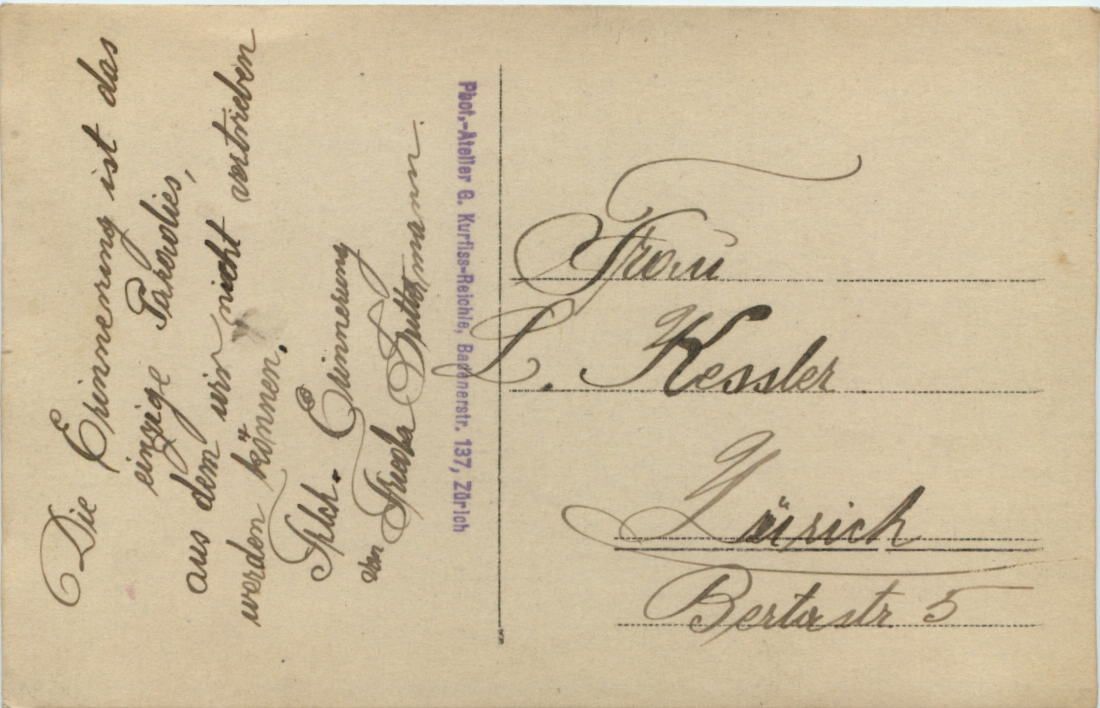 Die Erinnerung ist das
einzige Paradies,
aus dem wir nicht vertrieben
werden können.
Erinnerung
von Frieda
Phot.-Atelier G. Kurfiss-Reichle, Badenerstr. 137, Zürich
Frau
L. Kessler
Zürich
Bertastr 5